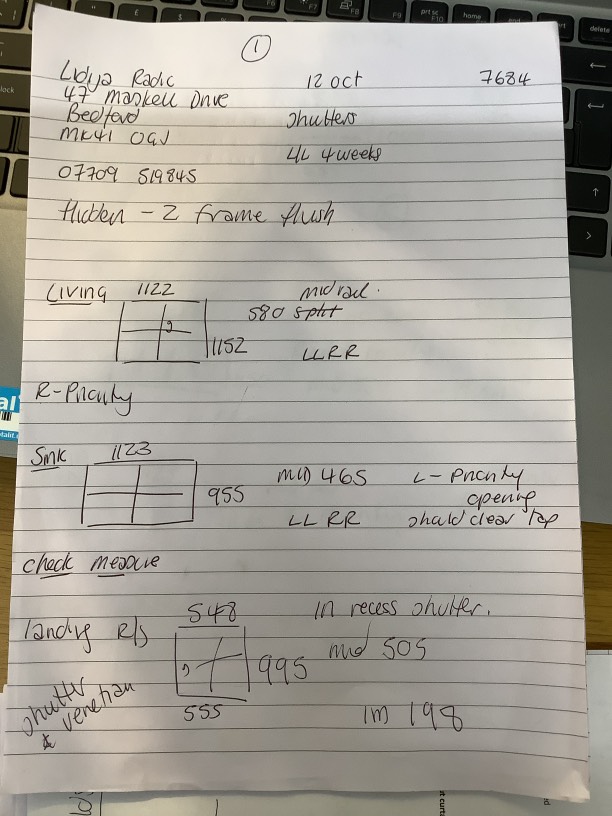 1
Lidya Radic 12 Oct 7684
47 Maskell Drive
Bedford Shutters
MK41 0GJ
4L 4 weeks
07709 519845
Hidden - Z frame flush
Living 1122 midrail.
580 split
1152 LLRR
R-Priority
Snk 1123
955 mid 465 L-Priority
opening
LL RR should clear Tap
check measure
landing R/S 548 In recess shutter.
995 mid 505
shutter
& venetian
555 1m 198